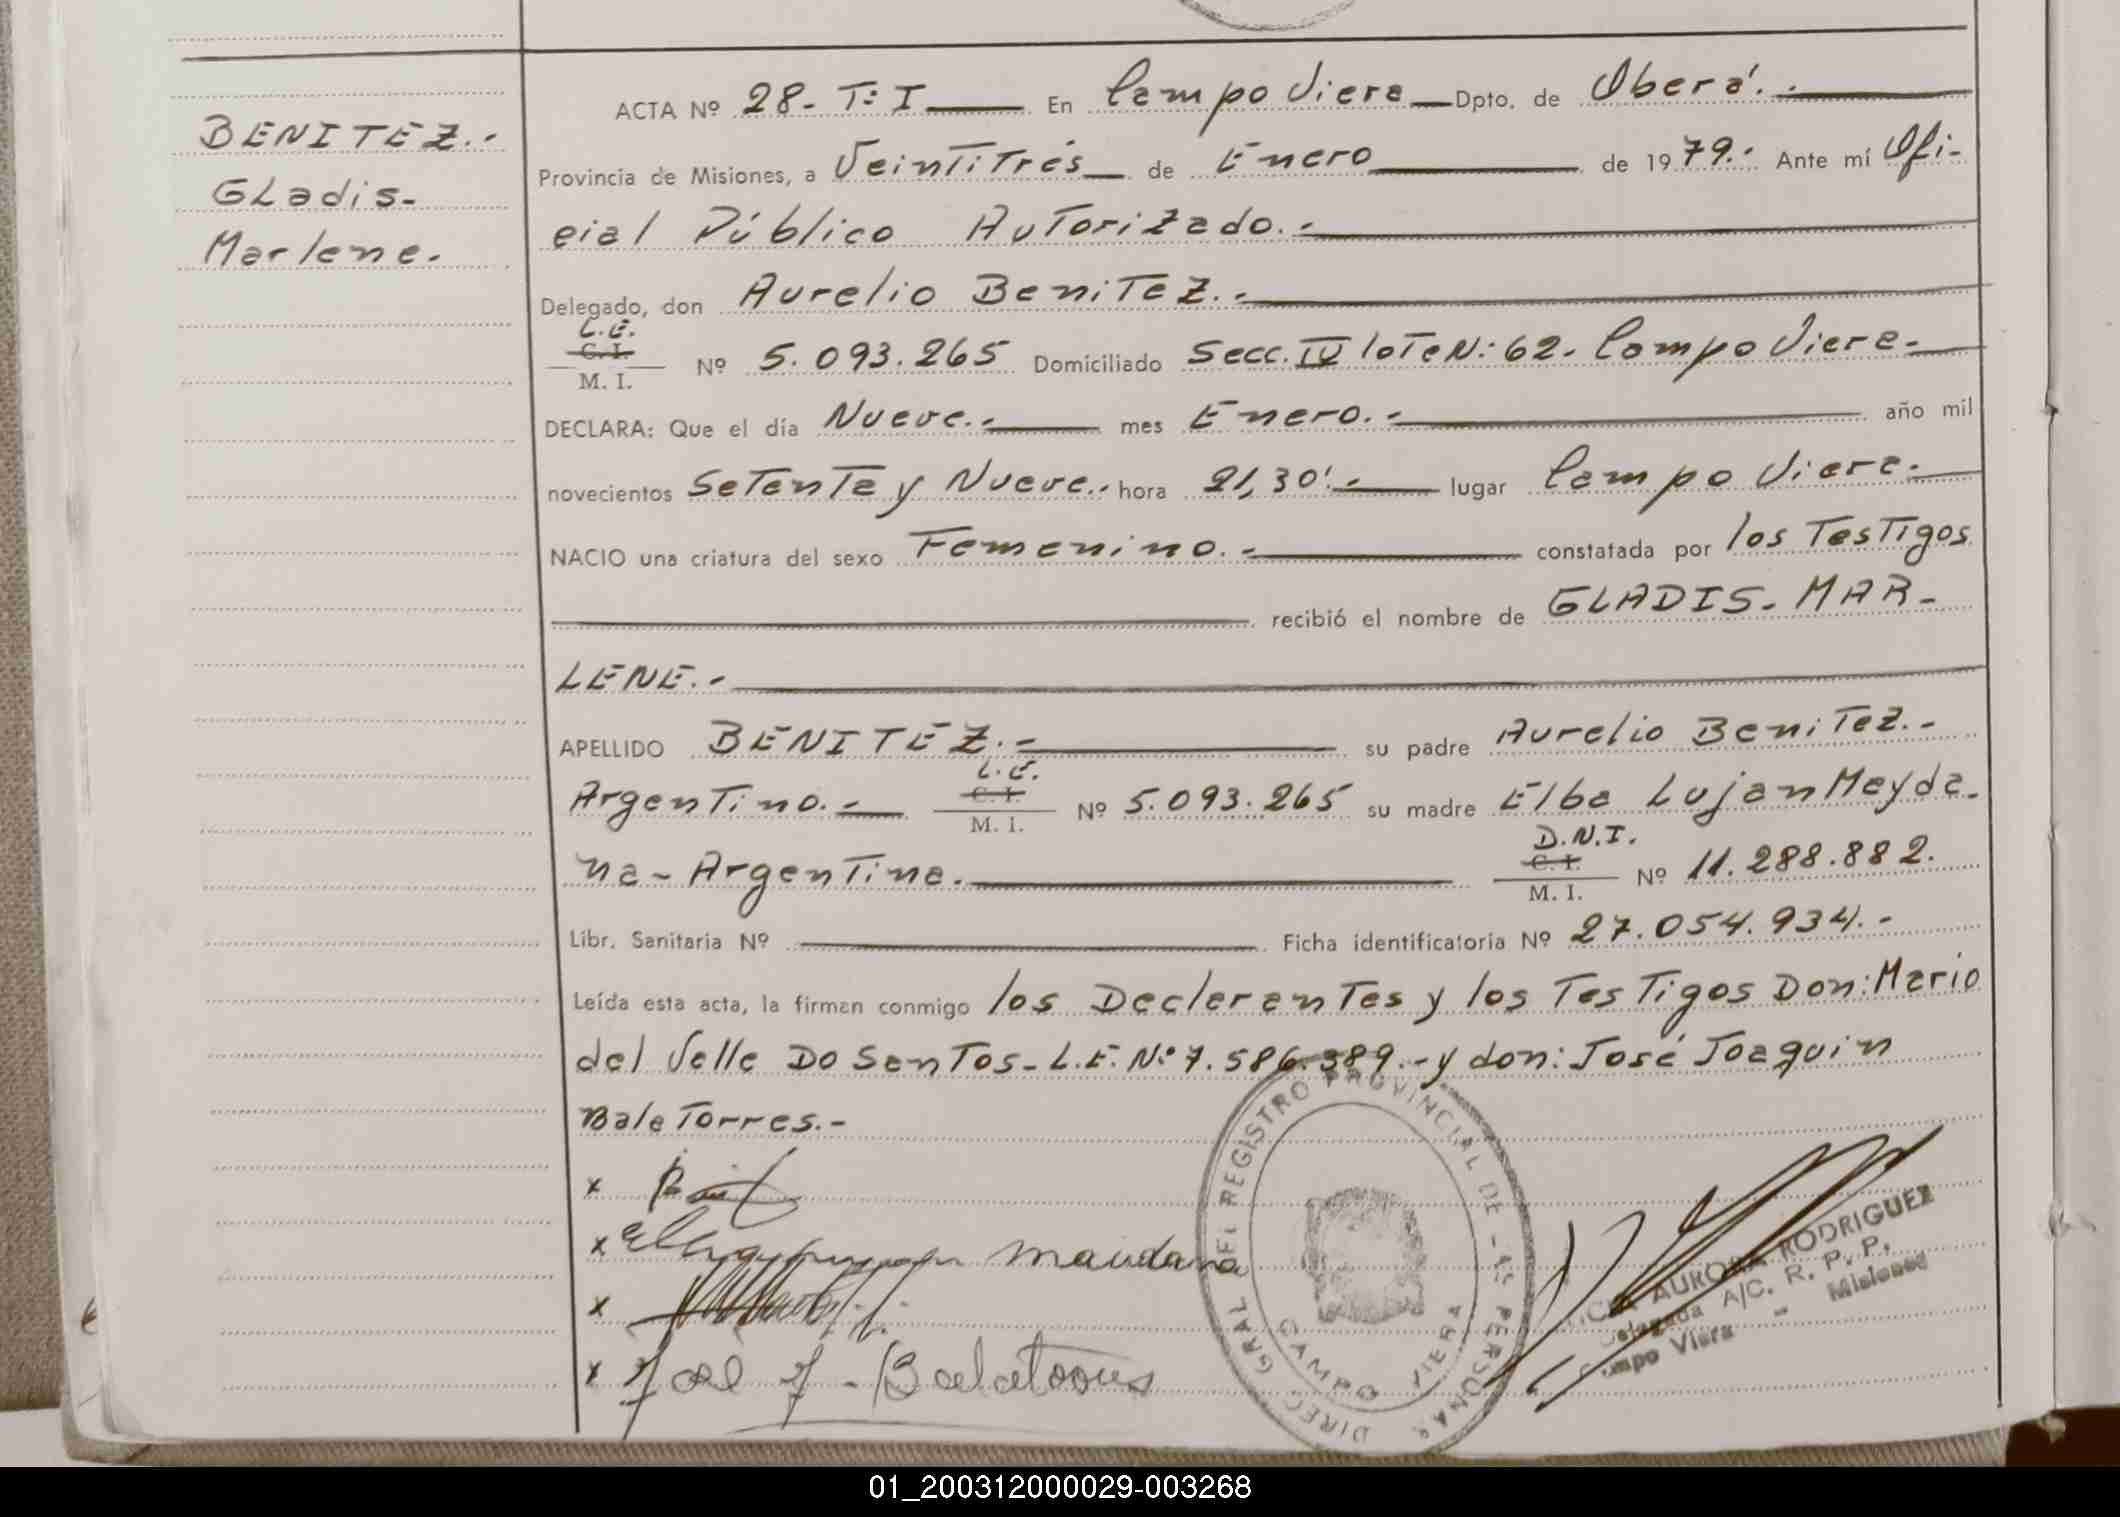 BENITEZ.-
GLadis-
Marlene.
ACTA Nº 28- T: I En Campo Viera Dpto. de Oberá.-
Provincia de Misiones, a Veintitrés de Enero de 1979.- Ante mí Ofi-
cial Público Autorizado.-
Delegado, don Aurelio Benitez.-
L.E.
C. I.
M. I. Nº 5.093.265 Domiciliado Secc. IV lote N: 62- Campo Viera-
DECLARA: Que el día Nueve.- mes Enero.- año mil
novecientos Setenta y Nueve.- hora 21,30'.- lugar Campo Viera.-
NACIO una criatura del sexo Femenino.- constatada por los Testigos
recibió el nombre de GLADIS- MAR-
LENE.-
APELLIDO BENITEZ.- su padre Aurelio Benitez.-
L.E.
Argentino.- C. I. Nº 5.093.265 su madre Elba Lujan Meyda-
M. I.
D.N.I.
na- Argentina. C. I. Nº 11.288.882.
M. I.
Libr. Sanitaria Nº Ficha identificatoria Nº 27.054.934.-
Leída esta acta, la firman conmigo los Declarantes y los Testigos Don: Mario
del Valle Do Santos- L.E. Nº 7.586.389.- y don: José Joaquin
Bale Torres.-
x
x maidana
x
x José J. Balatorres
DIREC. GRAL. DEL REGISTRO PROVINCIAL DE LAS PERSONAS
CAMPO VIERA
AURORA RODRIGUEZ
Delegada A/C. R. P. P.
Campo Viera - Misiones
01_200312000029-003268